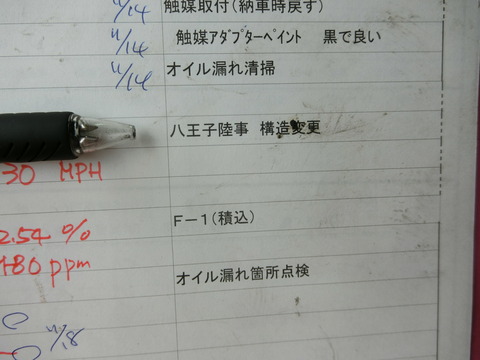 11/14 触媒取付(納車時戻す)
11/14 触媒アダプターペイント 黒で良い
11/14 オイル漏れ清掃
八王子陸事 構造変更
30 MPH
F-1(積込)
2.54 %
480 ppm
オイル漏れ箇所点検
11/18